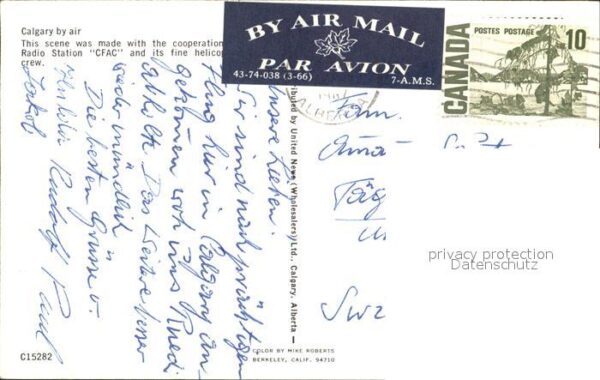 Calgary by air
This scene was made with the cooperation
Radio Station "CFAC" and its fine helico
crew.
BY AIR MAIL
PAR AVION
43-74-038 (3-66)
7-A.M.S.
CANADA
POSTES POSTAGE
10
Unsere Lieben!
Wir sind nach prächtigem
Flug hier in Calgary an-
gekommen, wo uns Ruedi
abholte. Das Weitere besser
wieder mündlich
Die besten Grüsse v.
Rudolf
Fam.
privacy protection
Datenschutz
ributed by United News (Wholesalers) Ltd., Calgary, Alberta
C15282
COLOR BY MIKE ROBERTS
BERKELEY, CALIF. 94710